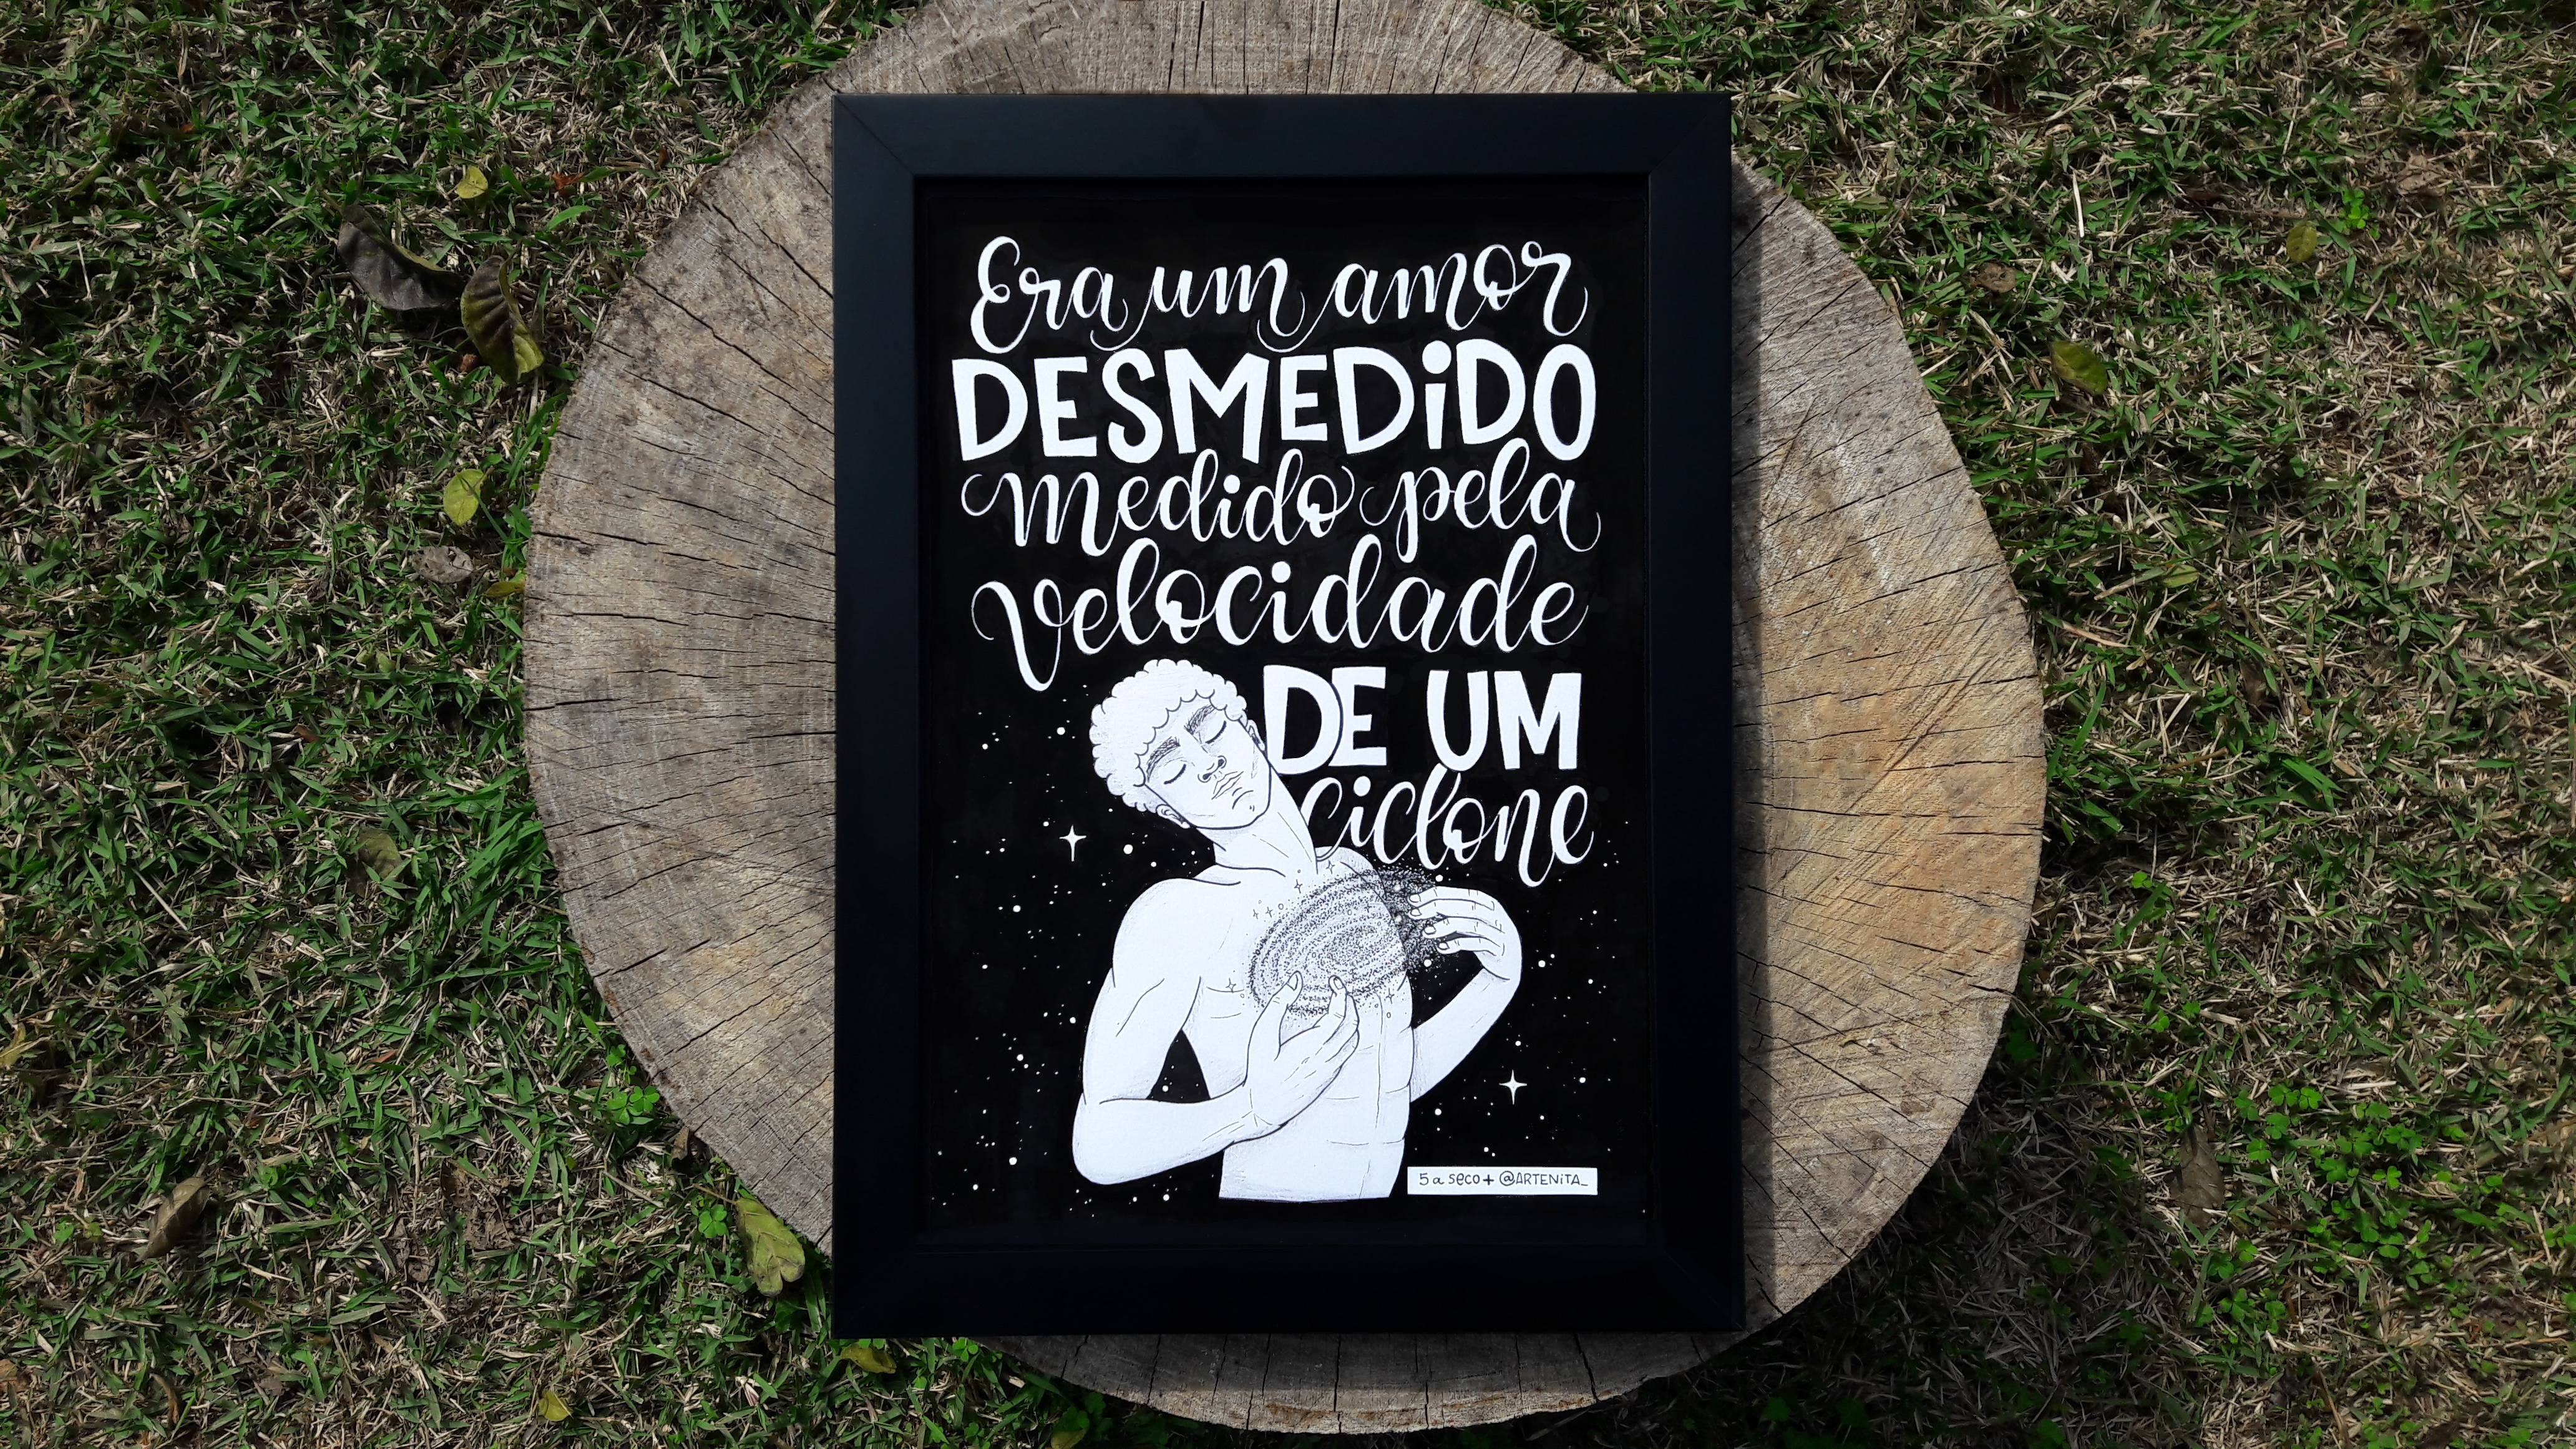 Era um amor
DESMEDiDO
medido pela
velocidade
DE UM
ciclone
5 a seco + @ARTENiTA_